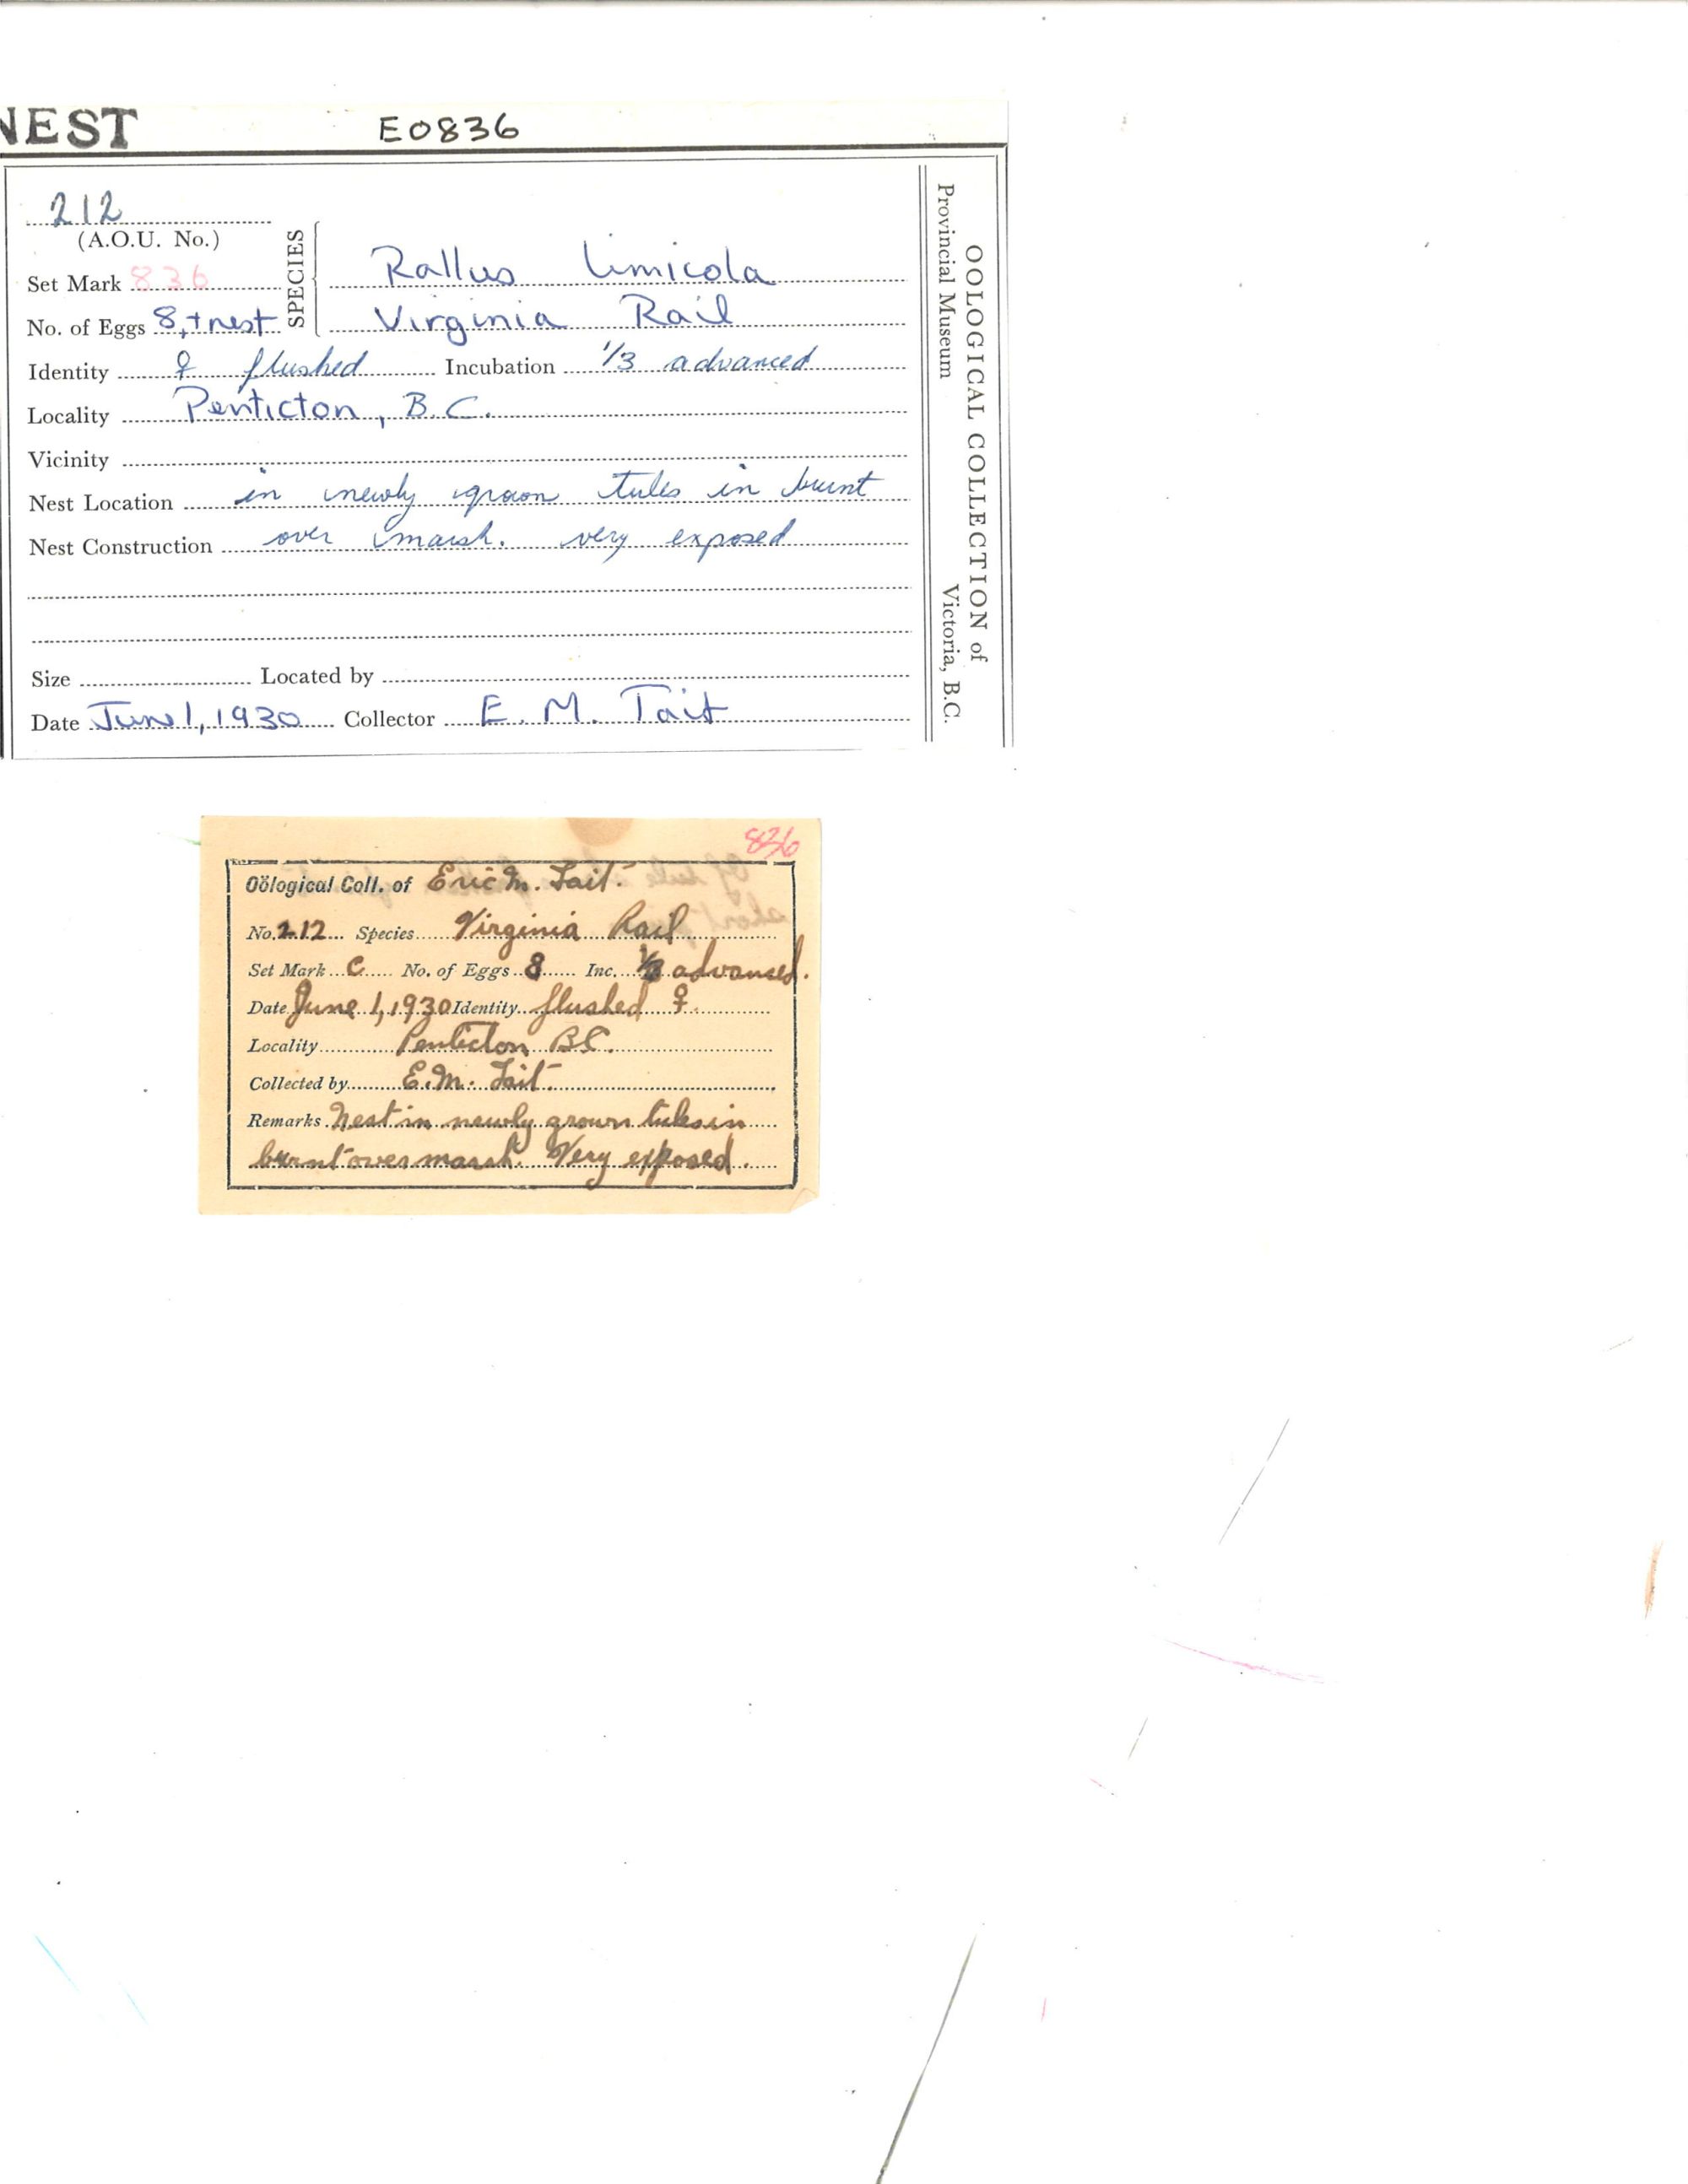 NEST E0836
212
(A.O.U. No.)
SPECIES
Set Mark 836
Rallus limicola
No. of Eggs 8, + nest
Virginia Rail
Identity ♀ flushed Incubation 1/3 advanced
Locality Penticton, B.C.
Vicinity
Nest Location in newly grown tules in burnt
Nest Construction over marsh. very exposed
Size Located by
Date June 1, 1930 Collector E. M. Tait
OOLOGICAL COLLECTION of
Provincial Museum Victoria, B.C.
836
Oölogical Coll. of Eric M. Tait.
No. 212 Species Virginia Rail
Set Mark C No. of Eggs 8 Inc. advanced.
Date June 1, 1930 Identity flushed ♀
Locality Penticton BC.
Collected by E.M. Tait.
Remarks Nest in newly grown tules in
burnt over marsh. Very exposed.